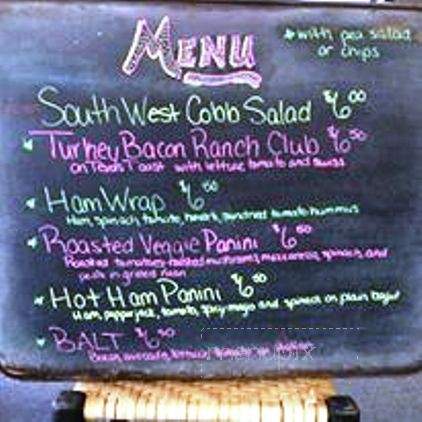 MENU
*with pea salad
or chips
SouthWest Cobb Salad $6.00
* Turkey Bacon Ranch Club $6.50
on Texas Toast with lettuce tomato and swiss
* Ham Wrap $6.50
Ham, spinach, tomato, tomato hummus
* Roasted Veggie Panini $6.50
Roasted tomatoes, roasted mushrooms, spinach, and
* Hot Ham Panini $6.50
Ham, pepperjack, tomato, spicy mayo and spinach on plain bagel
* BALT $6.50
Bacon, avocado, lettuce